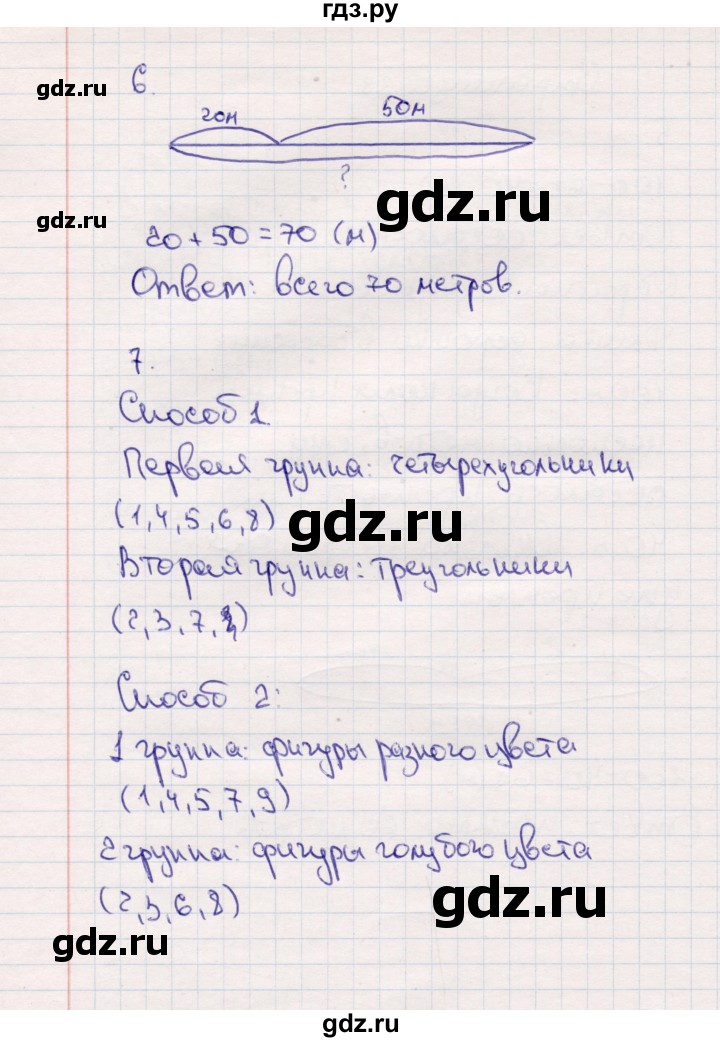 гдз.ру
gdz.ru
6.
20м 50м
?
gdz.ru
gdz.ru
20 + 50 = 70 (м)
Ответ: всего 70 метров.
7.
Способ 1
Первая группа: четырехугольники
(1,4,5,6,8)
gdz.ru
Вторая группа: треугольники
(2,3,7,9)
Способ 2:
1 группа: фигуры разного цвета
(1,4,5,7,9)
2 группа: фигуры голубого цвета
(2,3,6,8)
gdz.ru
gdz.ru
gdz.ru